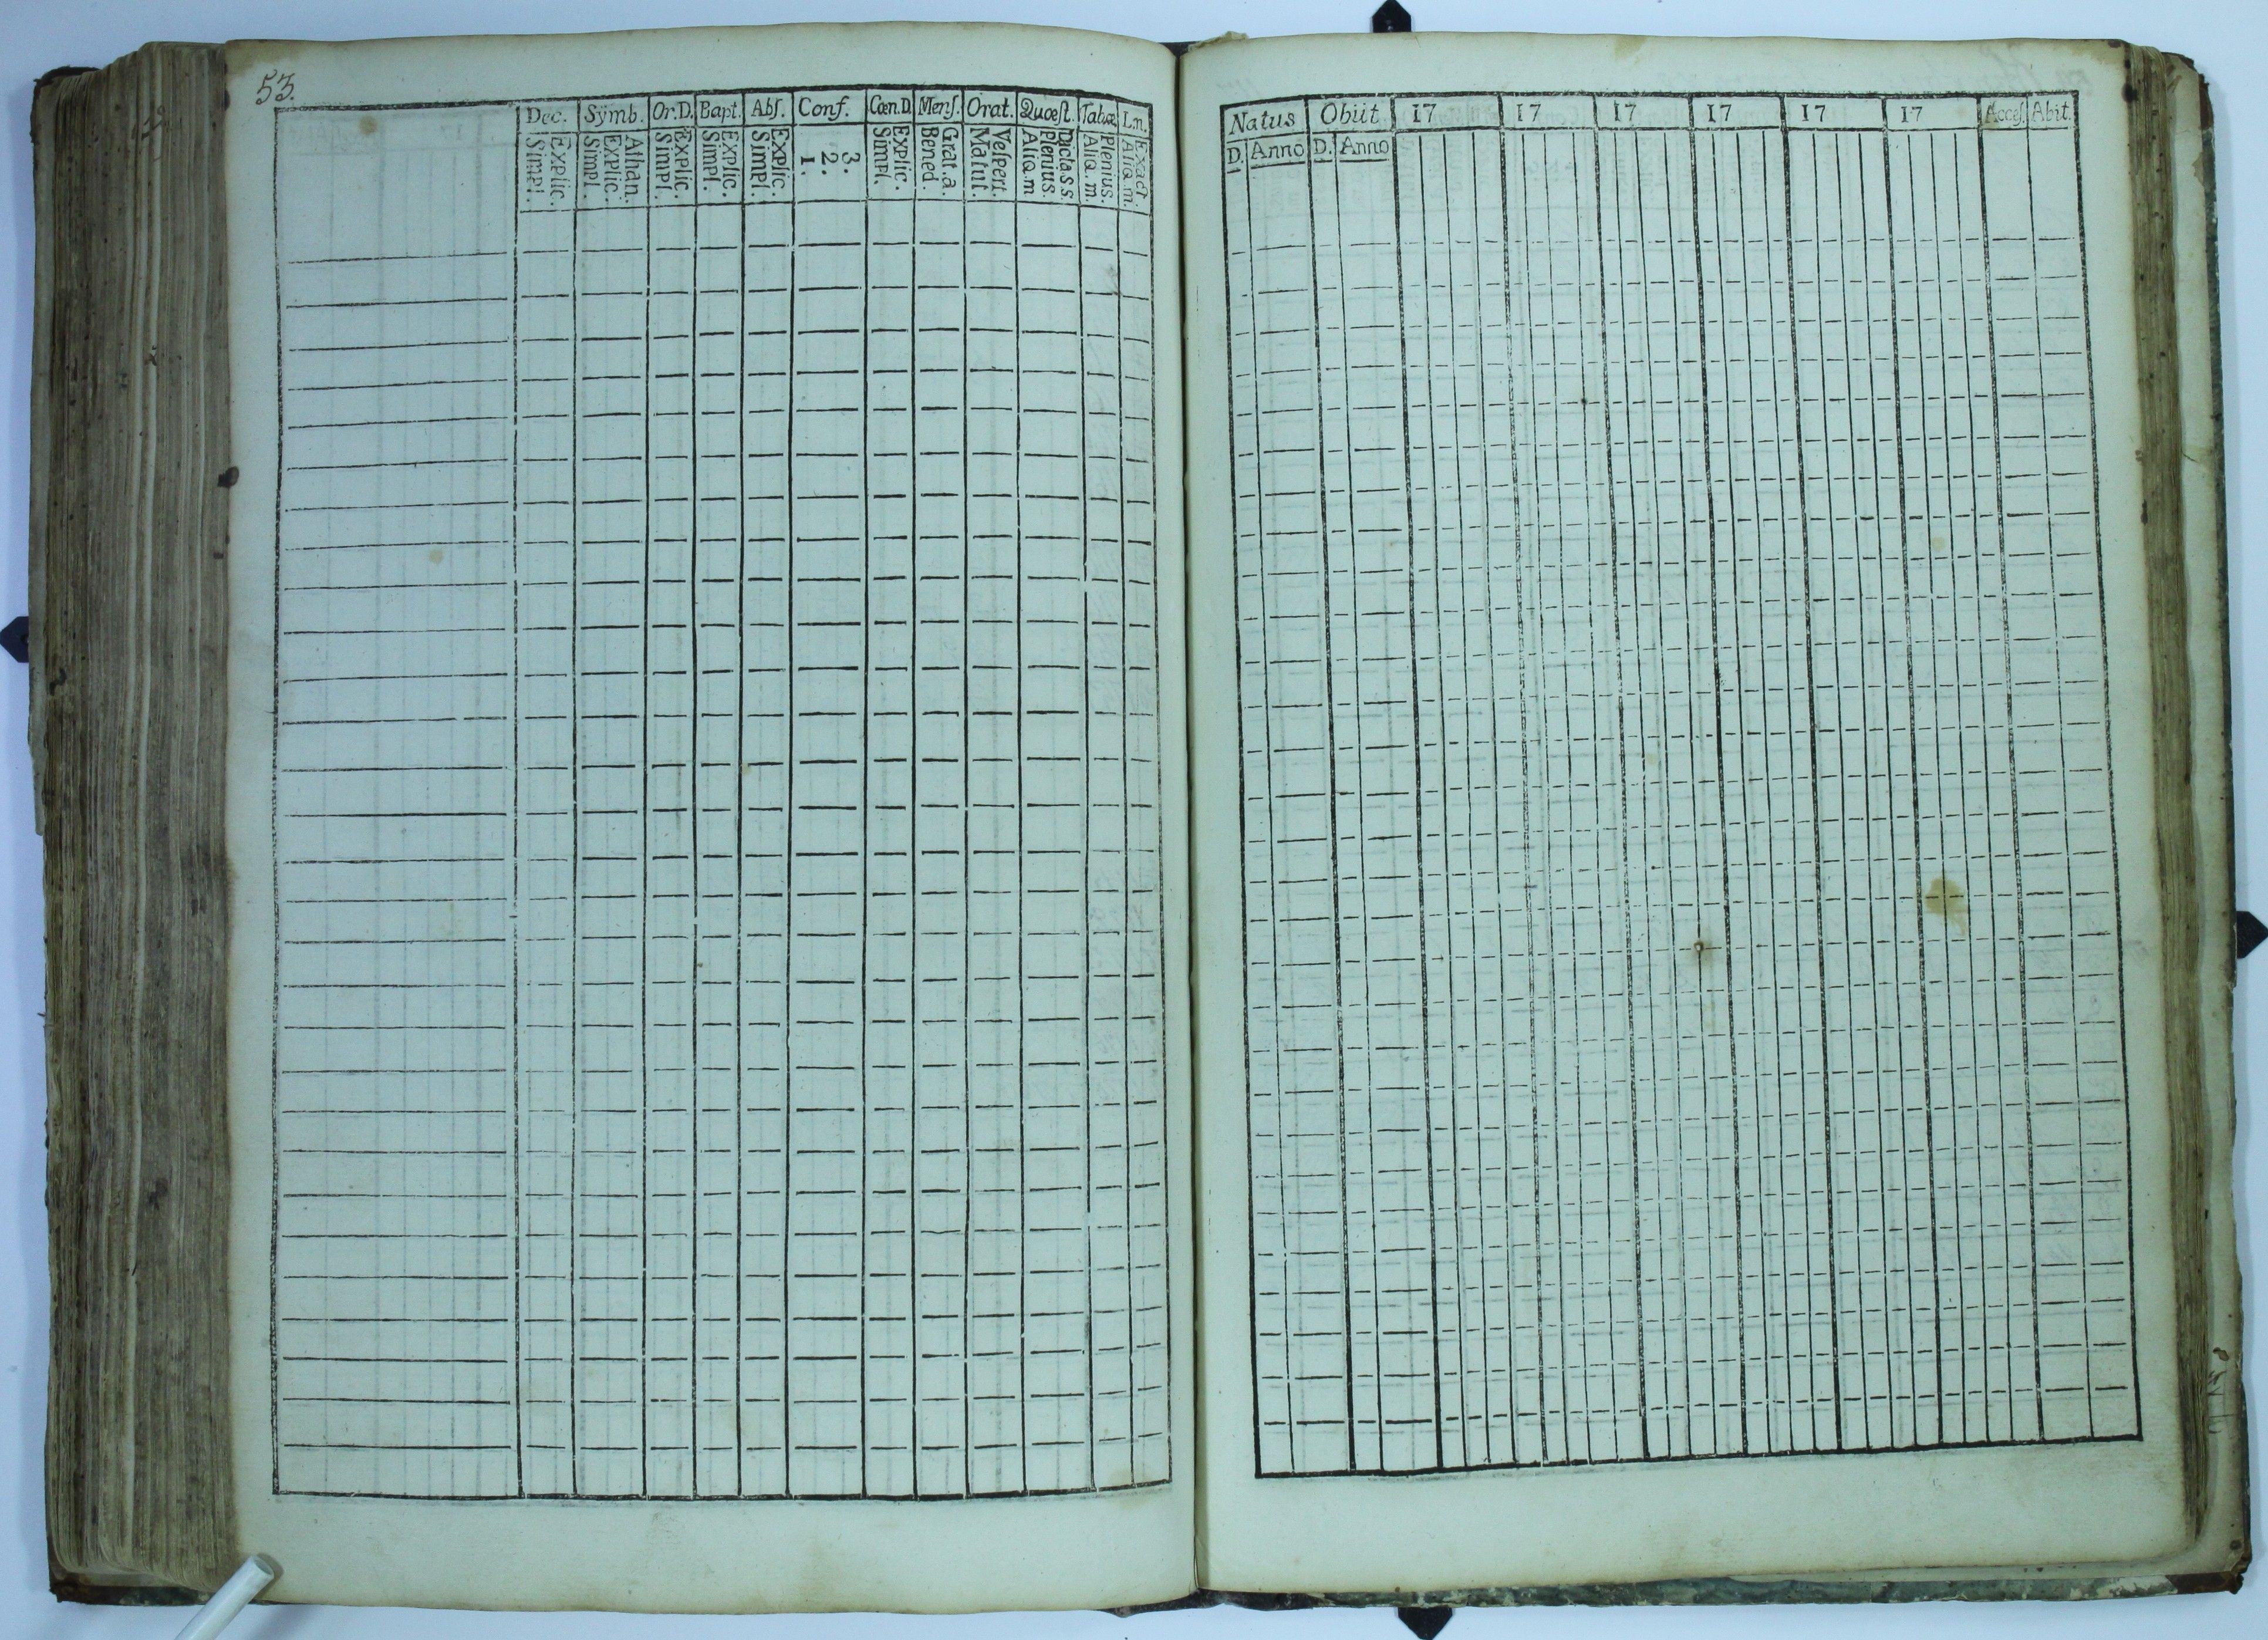 53.
Dec. Sÿmb. Or.D. Bapt. Abſ. Conf. Cœn.D. Menſ. Orat. Quœſt. Tabœ L.n.
Explic. Simpl.
Athan. Explic. Simpl.
Explic. Simpl.
Explic. Simpl.
Explic. Simpl.
3. 2. 1.
Explic. Simpl.
Grat.a. Bened.
Veſpert. Matut.
Dicta.s.s. Plenius. Aliq.m
Plenius. Aliq.m.
Exact. Aliq.m.
Natus Obiit 17 17 17 17 17 17 Acceſ. Abit.
D. Anno D. Anno